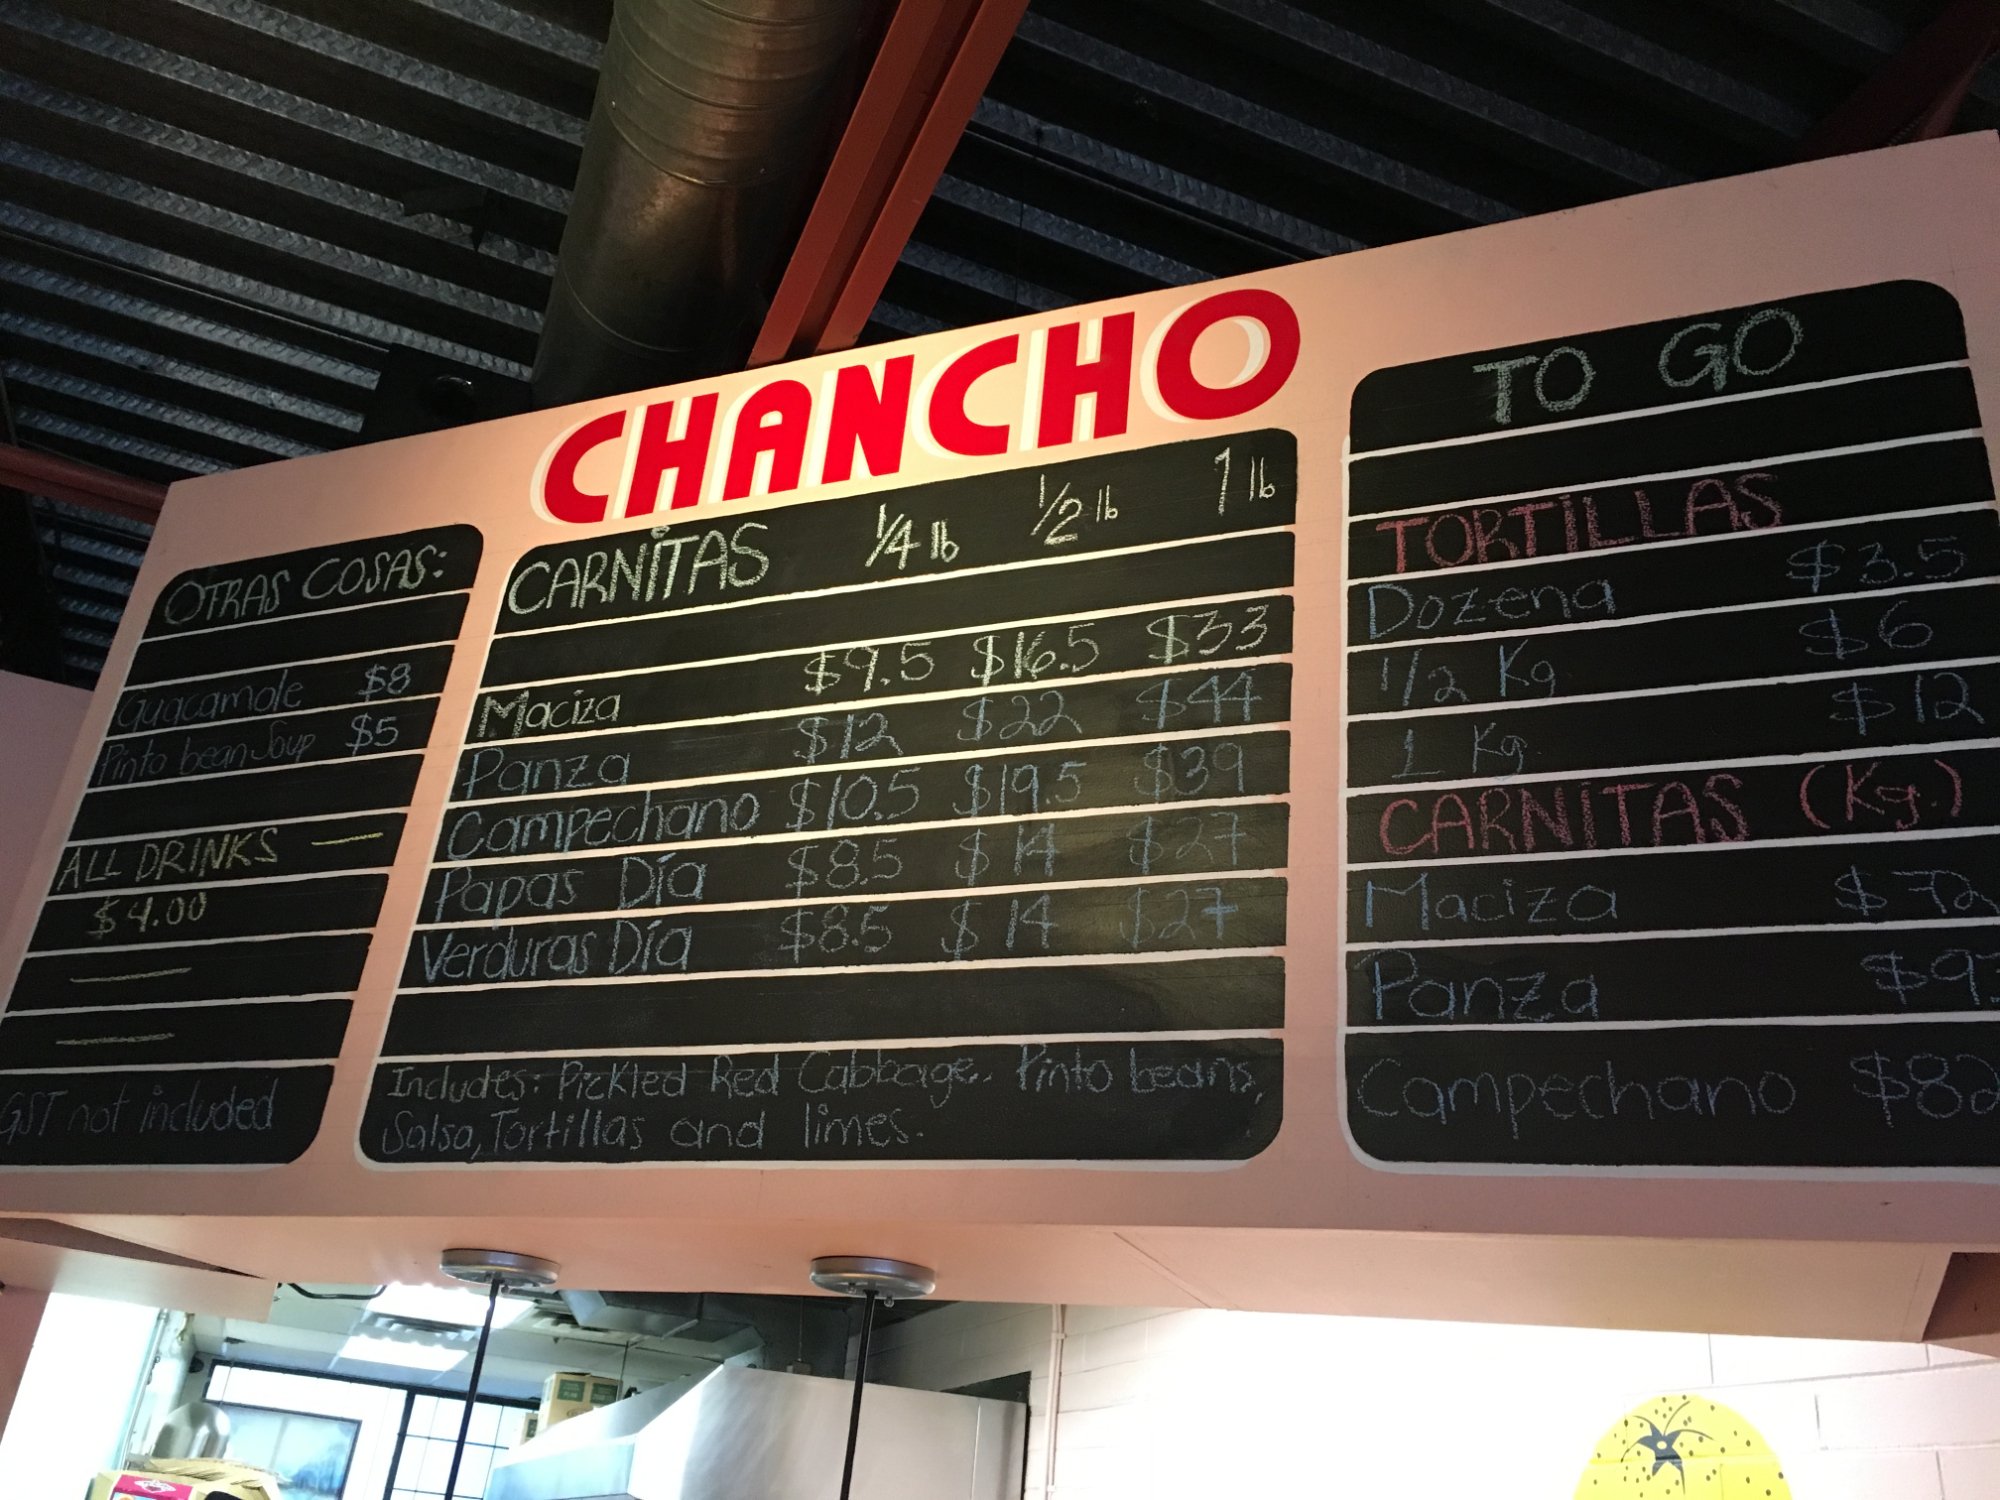 CHANCHO
OTRAS COSAS:
Guacamole $8
Pinto bean Soup $5
ALL DRINKS
$4.00
GST not included
CARNITAS 1/4 lb 1/2 lb 1 lb
Maciza $9.5 $16.5 $33
Panza $12 $22 $44
Campechano $10.5 $19.5 $39
Papas Día $8.5 $14 $27
Verduras Día $8.5 $14 $27
Includes: Pickled Red Cabbage, Pinto beans,
Salsa, Tortillas and limes.
TO GO
TORTILLAS
Dozena $3.5
1/2 Kg $6
1 Kg. $12
CARNITAS (Kg.)
Maciza $72
Panza $9
Campechano $82